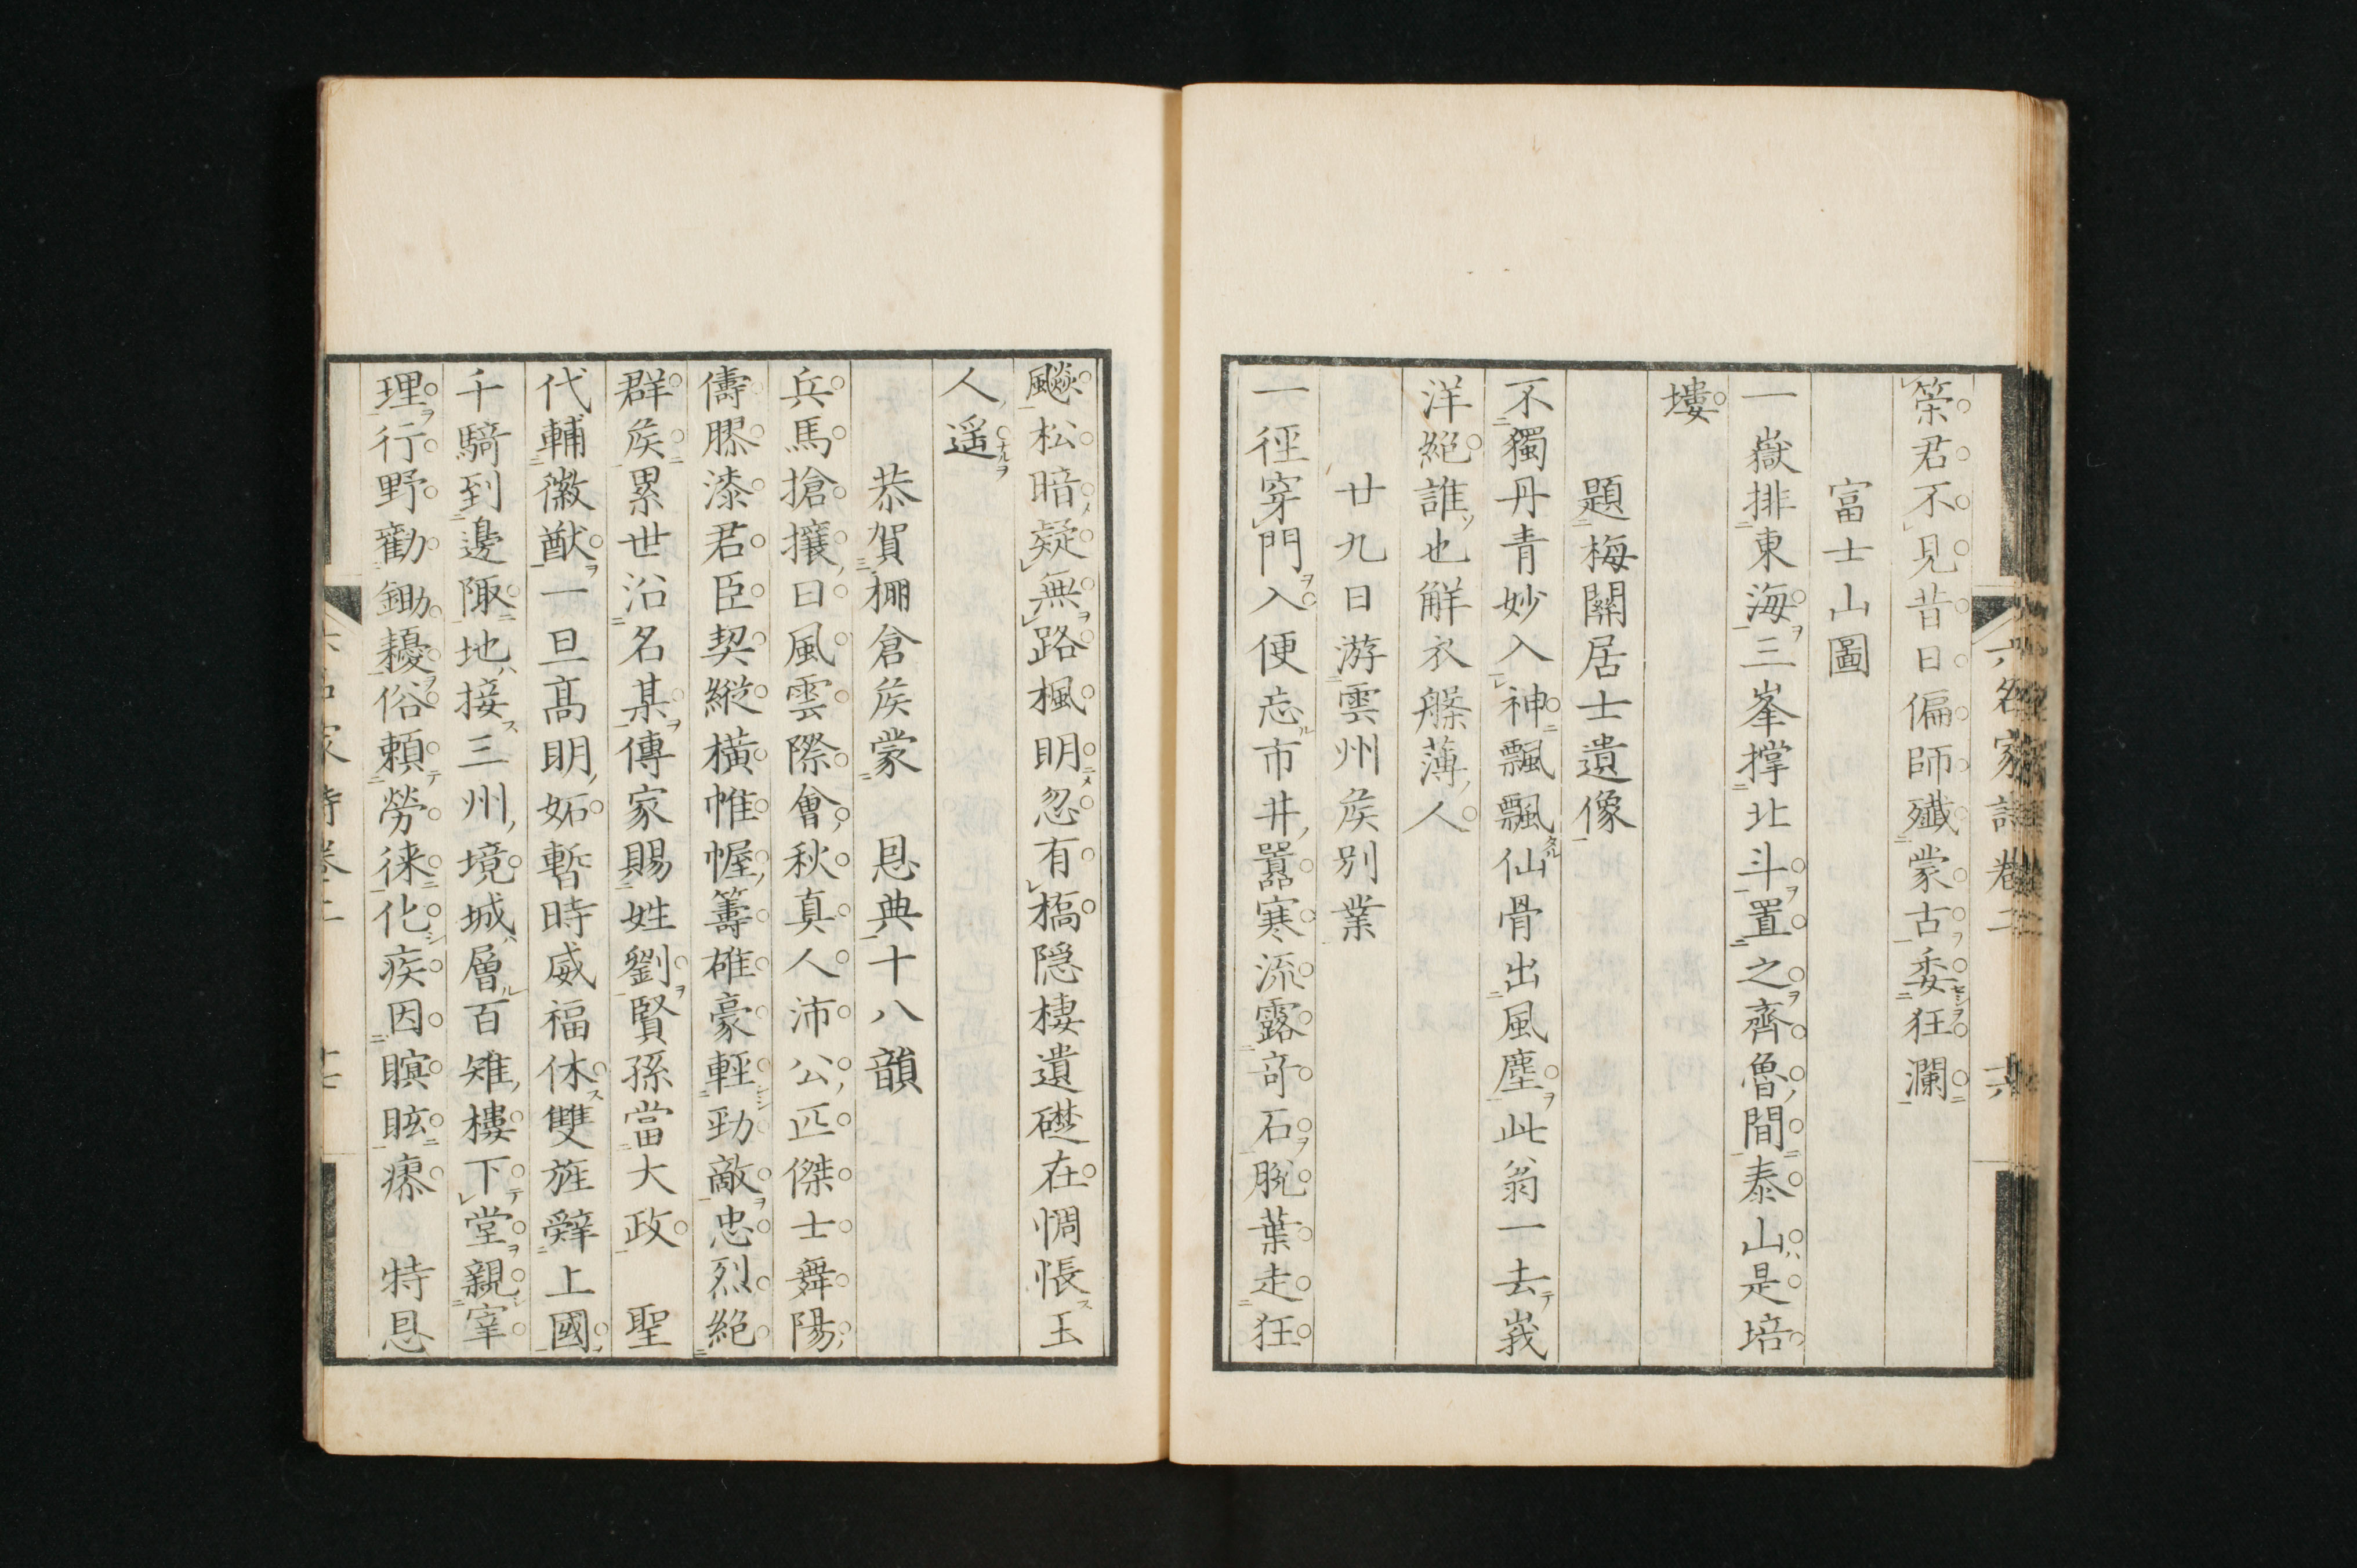 筞君不見昔日偏師殱蒙古委狂瀾
富士山圖
一嶽排東海三峯撑北斗置之齊魯間泰山是培
塿
題梅關居士遺像
不獨丹青妙入神飄飄仙骨出風塵此翁一去峩
洋絕誰也觧衣槃薄人
廿九日游雲州矦別業
一徑穿門入便忘市井囂寒流露竒石脫葉走狂
飇松暗疑無路楓明忽有橋隱棲遺礎在惆悵玉
人遥
恭賀棚倉矦蒙 恩典十八韻
兵馬搶攘日風雲際會秋真人沛公匹傑士舞陽
儔膠漆君臣契縱橫帷幄籌雄豪輕勁敵忠烈絕
群矦累世沿名某傳家賜姓劉賢孫當大政 聖
代輔徽猷一旦髙明妬暫時威福休雙旌辭上國
千騎到邊陬地接三州境城層百雉樓下堂親宰
理行野勸鋤耰俗頼勞徠化疾因瞑眩瘳 特恩
六名家詩卷二 十六